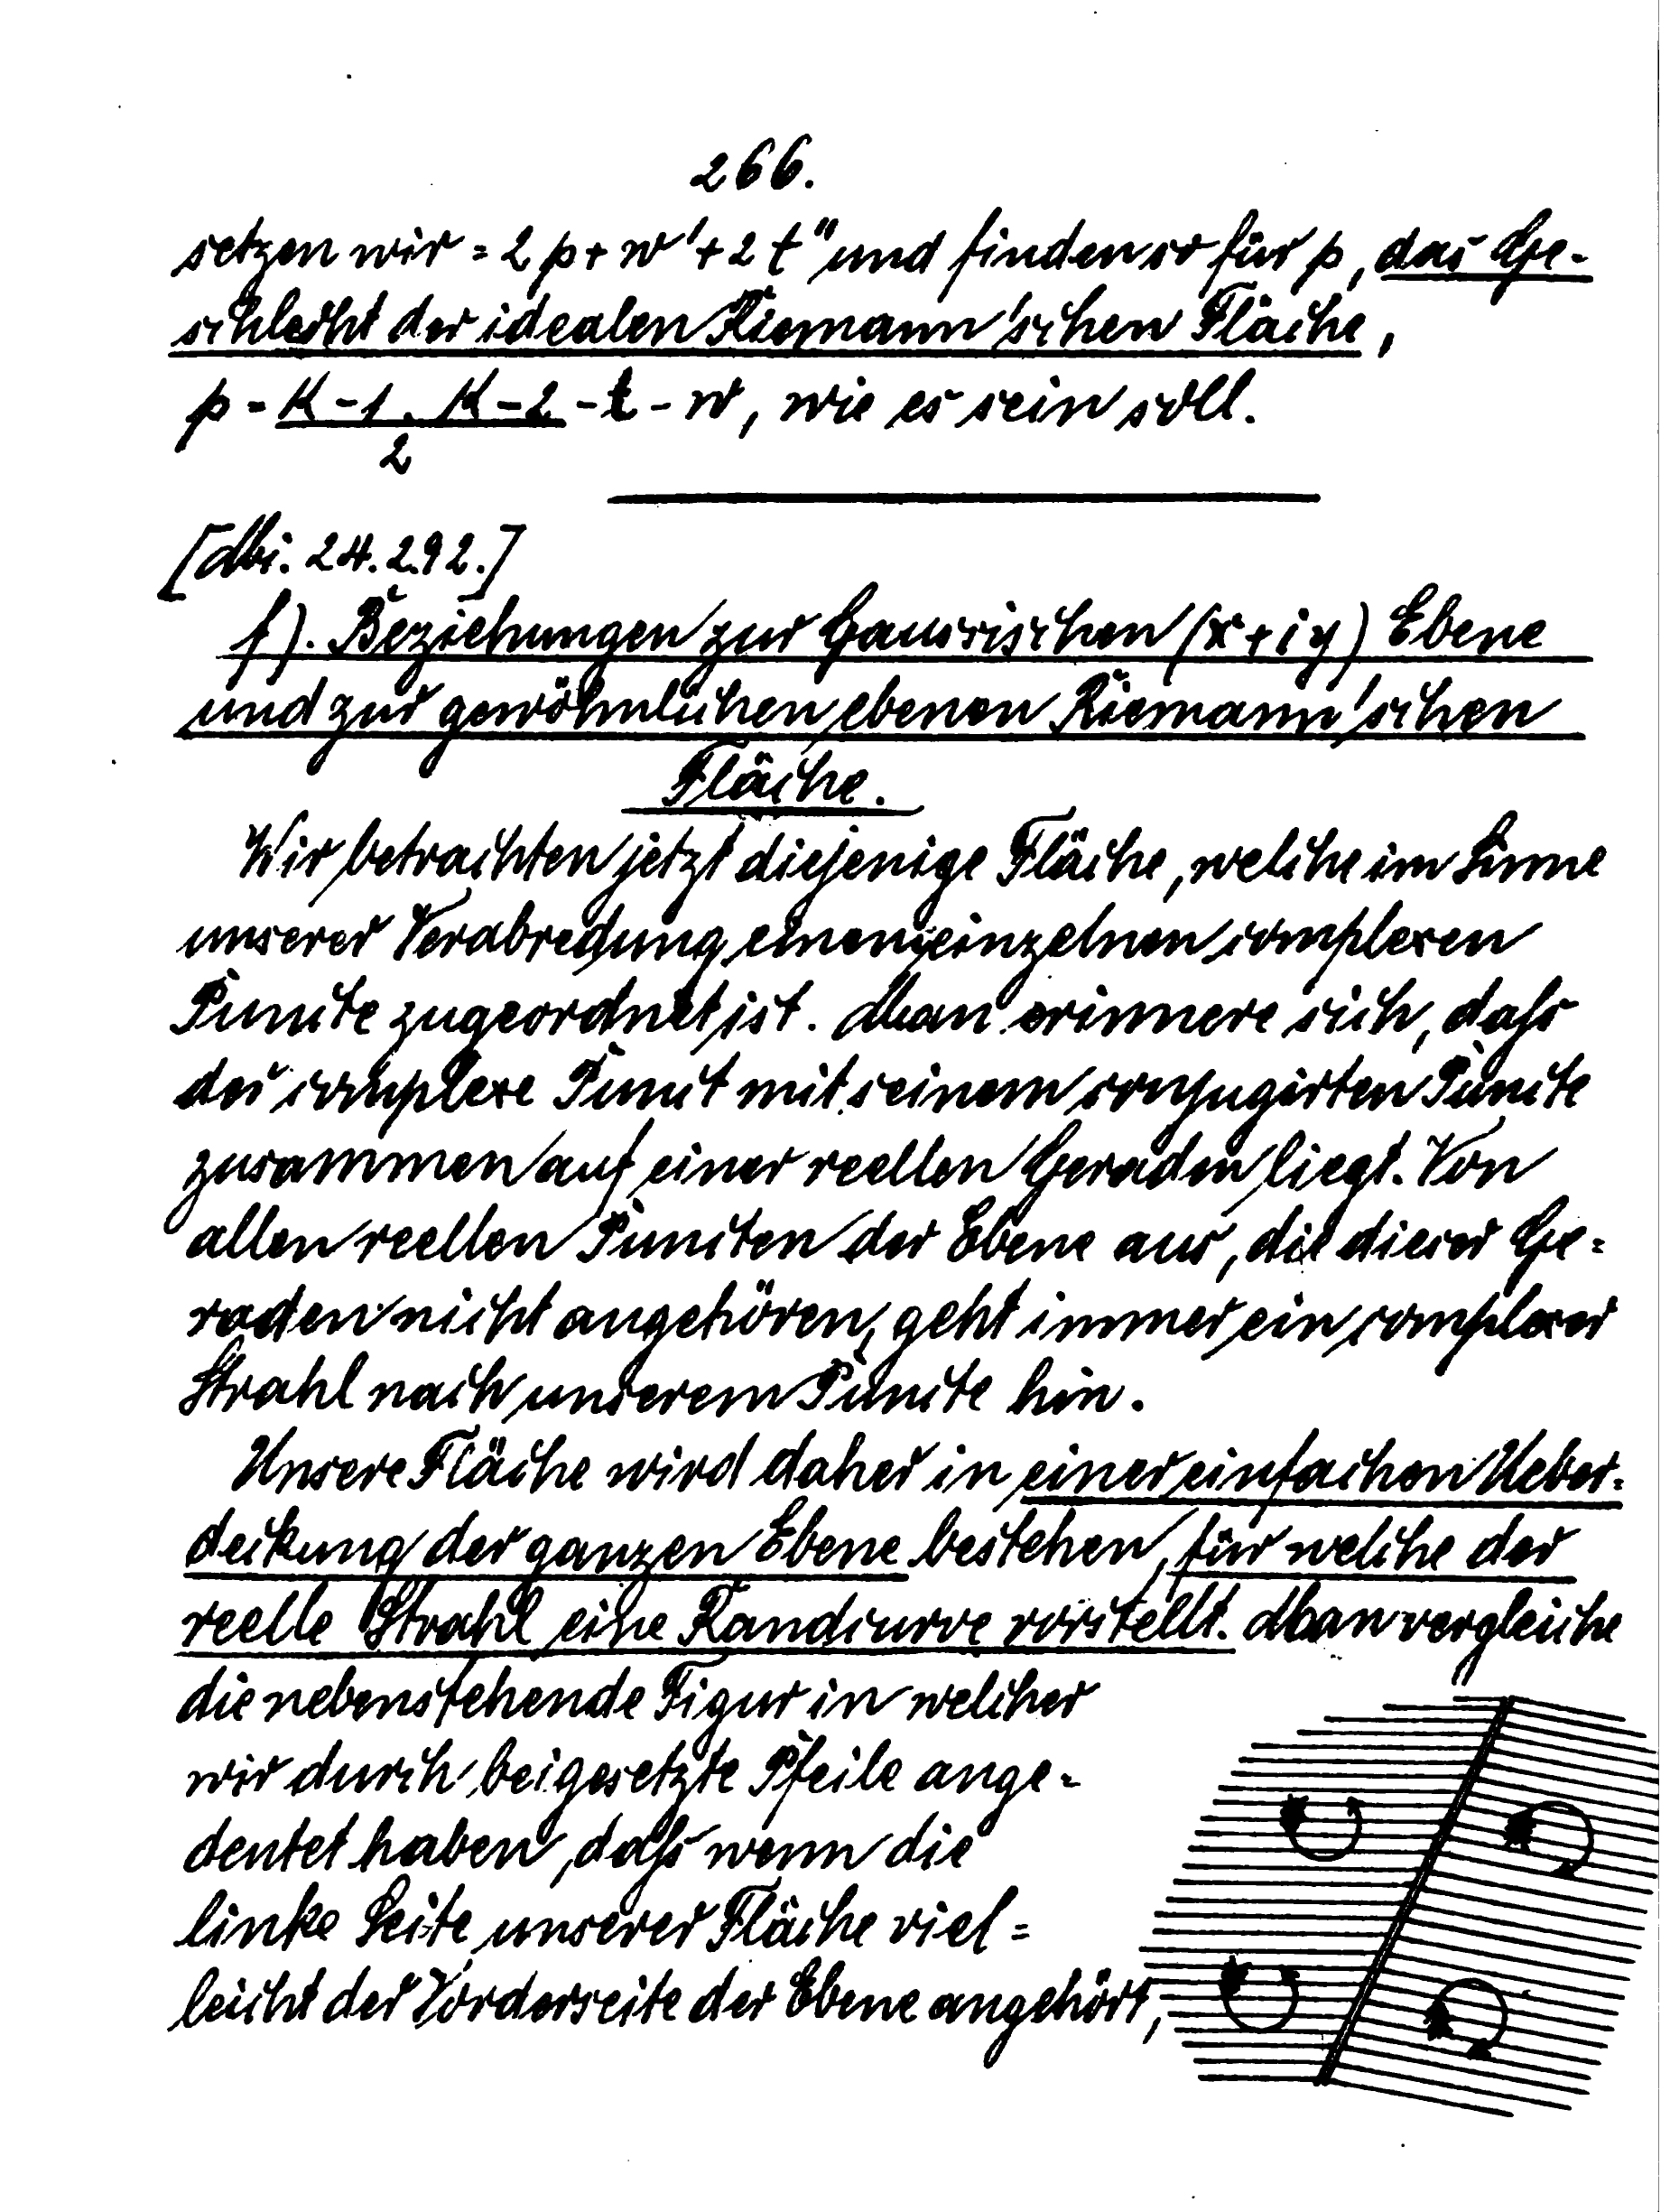 266.
setzen wir = 2p + w' + 2t" und finden so für p, das Ge-
schlecht der idealen Riemann'schen Fläche,
p = K-1 . K-2 - t - w, wie es sein soll.
2
[Mi. 24.2.92.]
f). Beziehungen zur Gaussischen (x+iy) Ebene
und zur gewöhnlichen ebenen Riemann'schen
Fläche.
Wir betrachten jetzt diejenige Fläche, welche im Sinne
unserer Verabredung einem einzelnen complexen
Puncte zugeordnet ist. Man erinnere sich, dass
der complexe Punct mit seinem conjugirten Puncte
zusammen auf einer reellen Geraden liegt. Von
allen reellen Puncten der Ebene aus, die dieser Ge=
raden nicht angehören, geht immer ein complexer
Strahl nach unserem Puncte hin.
Unsere Fläche wird daher in einer einfachen Ueber=
deckung der ganzen Ebene bestehen, für welche der
reelle Strahl eine Randcurve vorstellt. Man vergleiche
die nebenstehende Figur in welcher
wir durch beigesetzte Pfeile ange=
deutet haben, dass wenn die
linke Seite unserer Fläche viel=
leicht der Vorderseite der Ebene angehört,